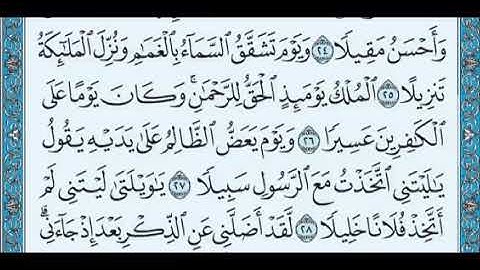 وَأَحْسَنُ مَقِيلًا ٢٤ وَيَوْمَ تَشَقَّقُ السَّمَآءُ بِالْغَمَـٰمِ وَنُزِّلَ الْمَلَـٰٓئِكَةُ
تَنزِيلًا ٢٥ الْمُلْكُ يَوْمَئِذٍ الْحَقُّ لِلرَّحْمَـٰنِ ۚ وَكَانَ يَوْمًا عَلَى
الْكَـٰفِرِينَ عَسِيرًا ٢٦ وَيَوْمَ يَعَضُّ الظَّالِمُ عَلَىٰ يَدَيْهِ يَقُولُ
يَـٰلَيْتَنِي اتَّخَذْتُ مَعَ الرَّسُولِ سَبِيلًا ٢٧ يَـٰوَيْلَتَىٰ لَيْتَنِي لَمْ
أَتَّخِذْ فُلَانًا خَلِيلًا ٢٨ لَّقَدْ أَضَلَّنِي عَنِ الذِّكْرِ بَعْدَ إِذْ جَآءَنِي ۗ